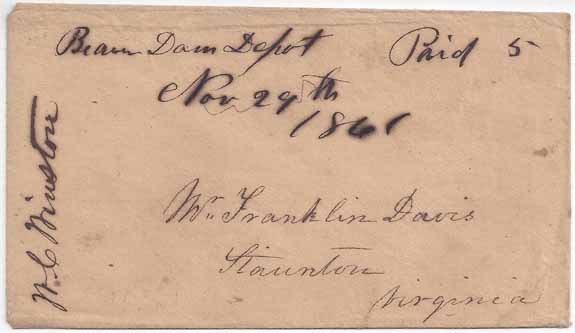 Beaver Dam Depot Paid 5
Nov 29th
1861
W. C. Winston
Mr. Franklin Davis
Staunton
Virginia